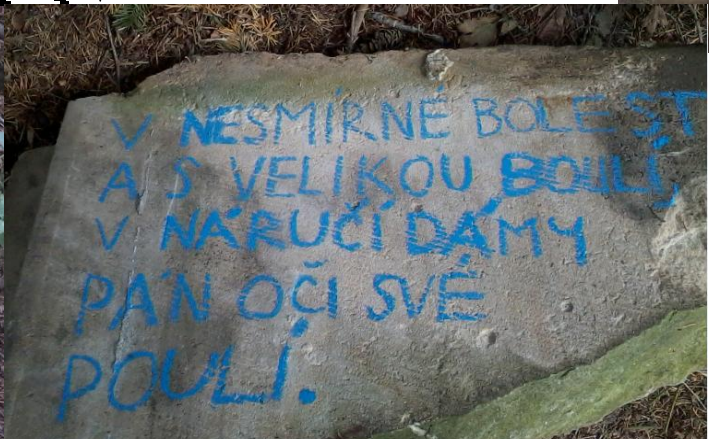 V NESMÍRNÉ BOLEST
A S VELIKOU BOULÍ,
V NÁRUČÍ DÁMY
PÁN OČI SVÉ
POULÍ.